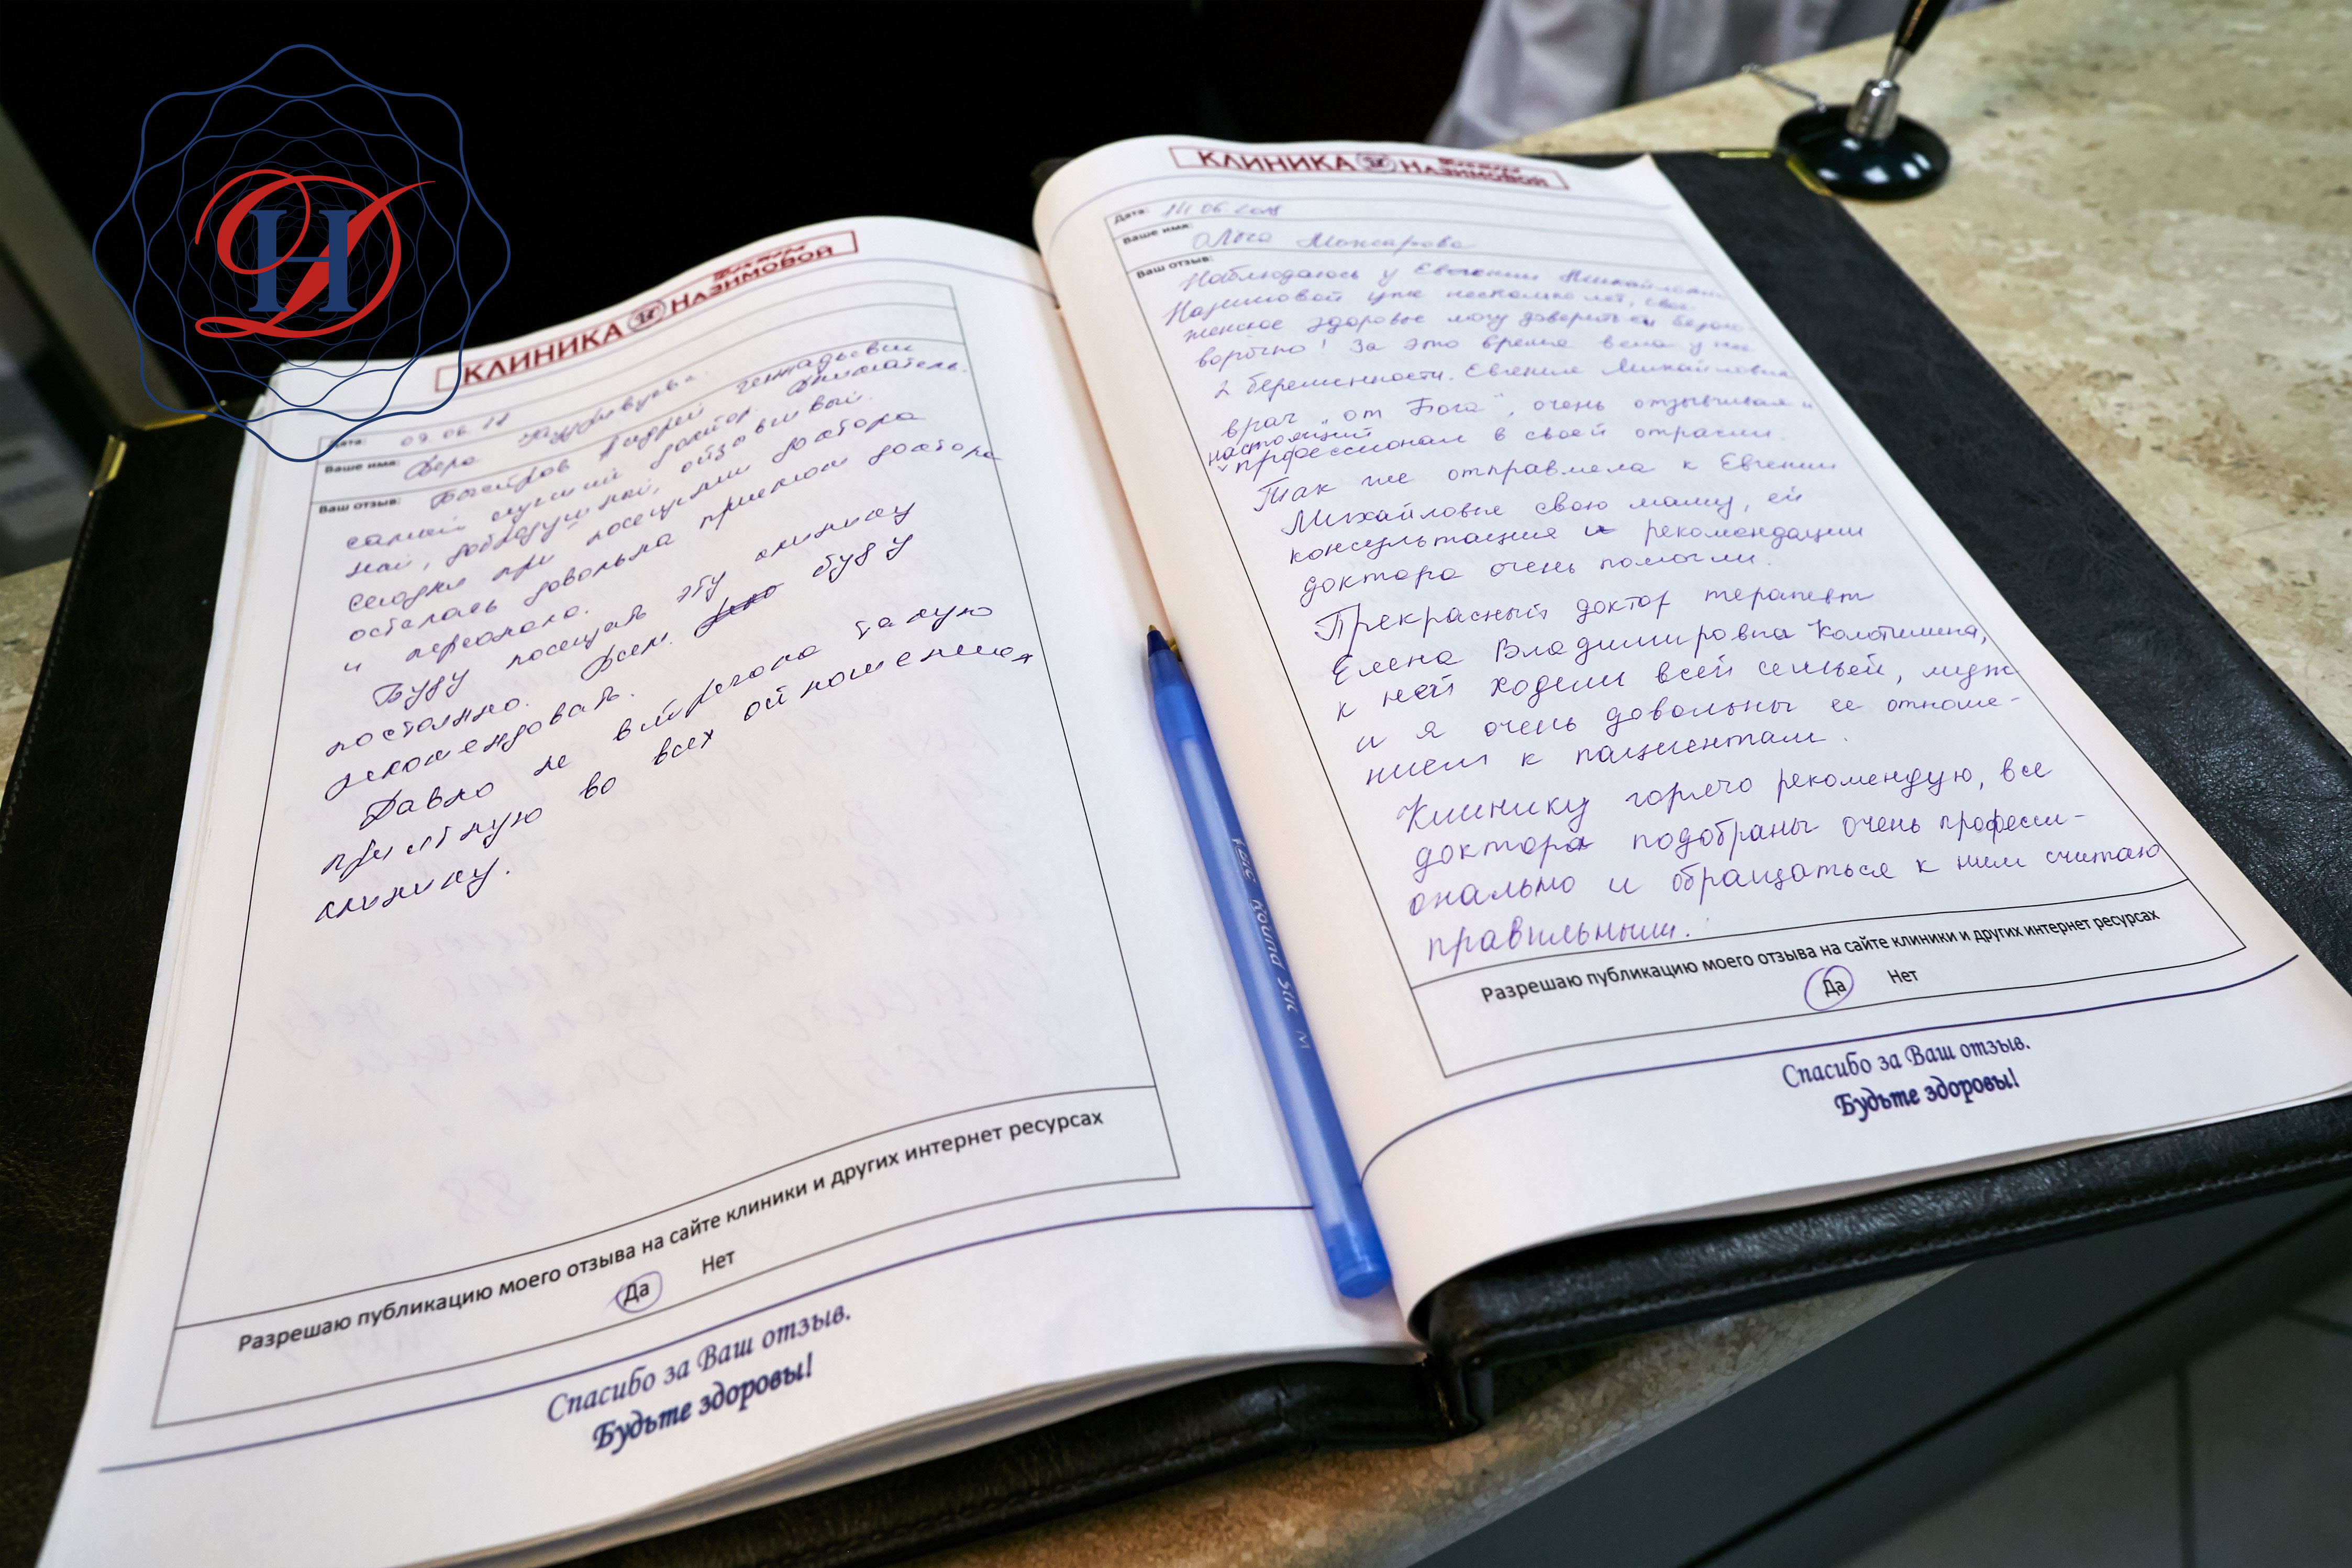 КЛИНИКА НАЗИМОВОЙ
Дата: 09.06.18
Ваше имя: Вера
Ваш отзыв: Быстров Андрей Геннадьевич
самый лучший доктор. Вниматель-
ный, добродушный, отзывчивый.
Сегодня при посещении доктора
осталась довольна приемом доктора
и персонала.
Буду посещать эту клинику
постоянно. Всем буду
рекомендовать.
Давно не встречала такую
приятную во всех отношениях
клинику.
Разрешаю публикацию моего отзыва на сайте клиники и других интернет ресурсах
Да Нет
Спасибо за Ваш отзыв.
Будьте здоровы!
КЛИНИКА НАЗИМОВОЙ
Дата: 14.06.2018
Ваше имя: Ольга Можарова
Ваш отзыв: Наблюдаюсь у Евгении Михайловны
Назимовой уже несколько лет, свое
женское здоровье могу доверить ей безого-
ворочно! За это время вела у нее
2 беременности. Евгения Михайловна
врач "от Бога", очень отзывчивая и
настоящий
профессионал в своей отрасли.
Так же отправляла к Евгении
Михайловне свою маму, ей
консультация и рекомендации
доктора очень помогли.
Прекрасный доктор терапевт
Елена Владимировна Колотилина,
к ней ходили всей семьей, муж
и я очень довольны ее отноше-
нием к пациентам.
Клинику горячо рекомендую, все
доктора подобраны очень професси-
онально и обращаться к ним считаю
правильным.
Разрешаю публикацию моего отзыва на сайте клиники и других интернет ресурсах
Да Нет
Спасибо за Ваш отзыв.
Будьте здоровы!